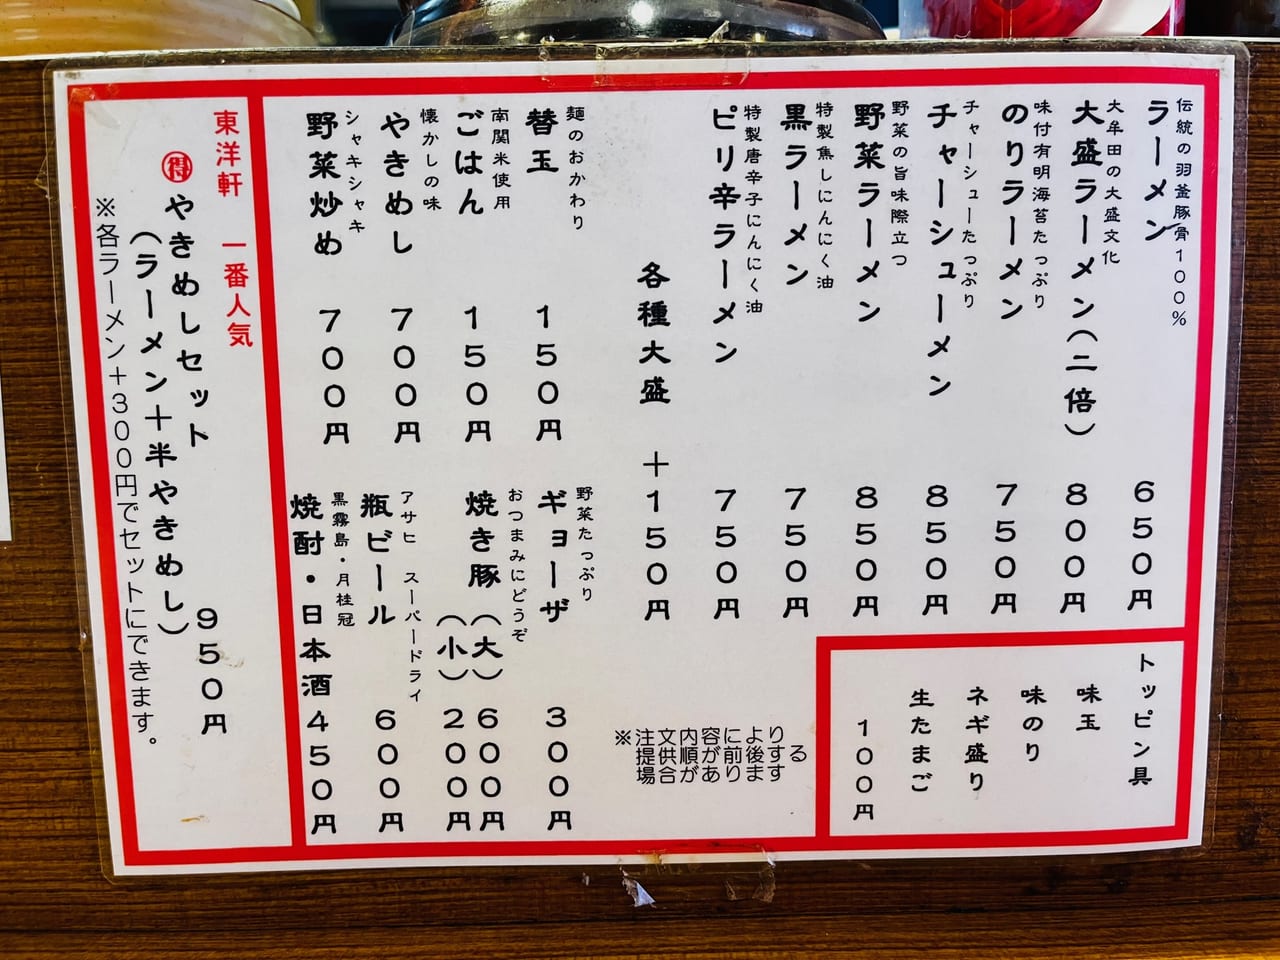 伝統の羽釜豚骨100%
ラーメン 650円
大牟田の大盛文化
大盛ラーメン(二倍) 800円
味付有明海苔たっぷり
のりラーメン 750円
チャーシューたっぷり
チャーシューメン 850円
野菜の旨味際立つ
野菜ラーメン 850円
特製焦しにんにく油
黒ラーメン 750円
特製唐辛子にんにく油
ピリ辛ラーメン 750円
各種大盛 +150円
トッピン具
味玉
味のり
ネギ盛り
生たまご
100円
※注文内容により
提供順が前後する
場合があります
麺のおかわり
替玉 150円
南関米使用
ごはん 150円
懐かしの味
やきめし 700円
シャキシャキ
野菜炒め 700円
野菜たっぷり
ギョーザ 300円
おつまみにどうぞ
焼き豚(大) 600円
(小) 200円
アサヒ スーパードライ
瓶ビール 600円
黒霧島・月桂冠
焼酎・日本酒 450円
東洋軒 一番人気
得 やきめしセット 950円
(ラーメン+半やきめし)
※各ラーメン+300円でセットにできます。